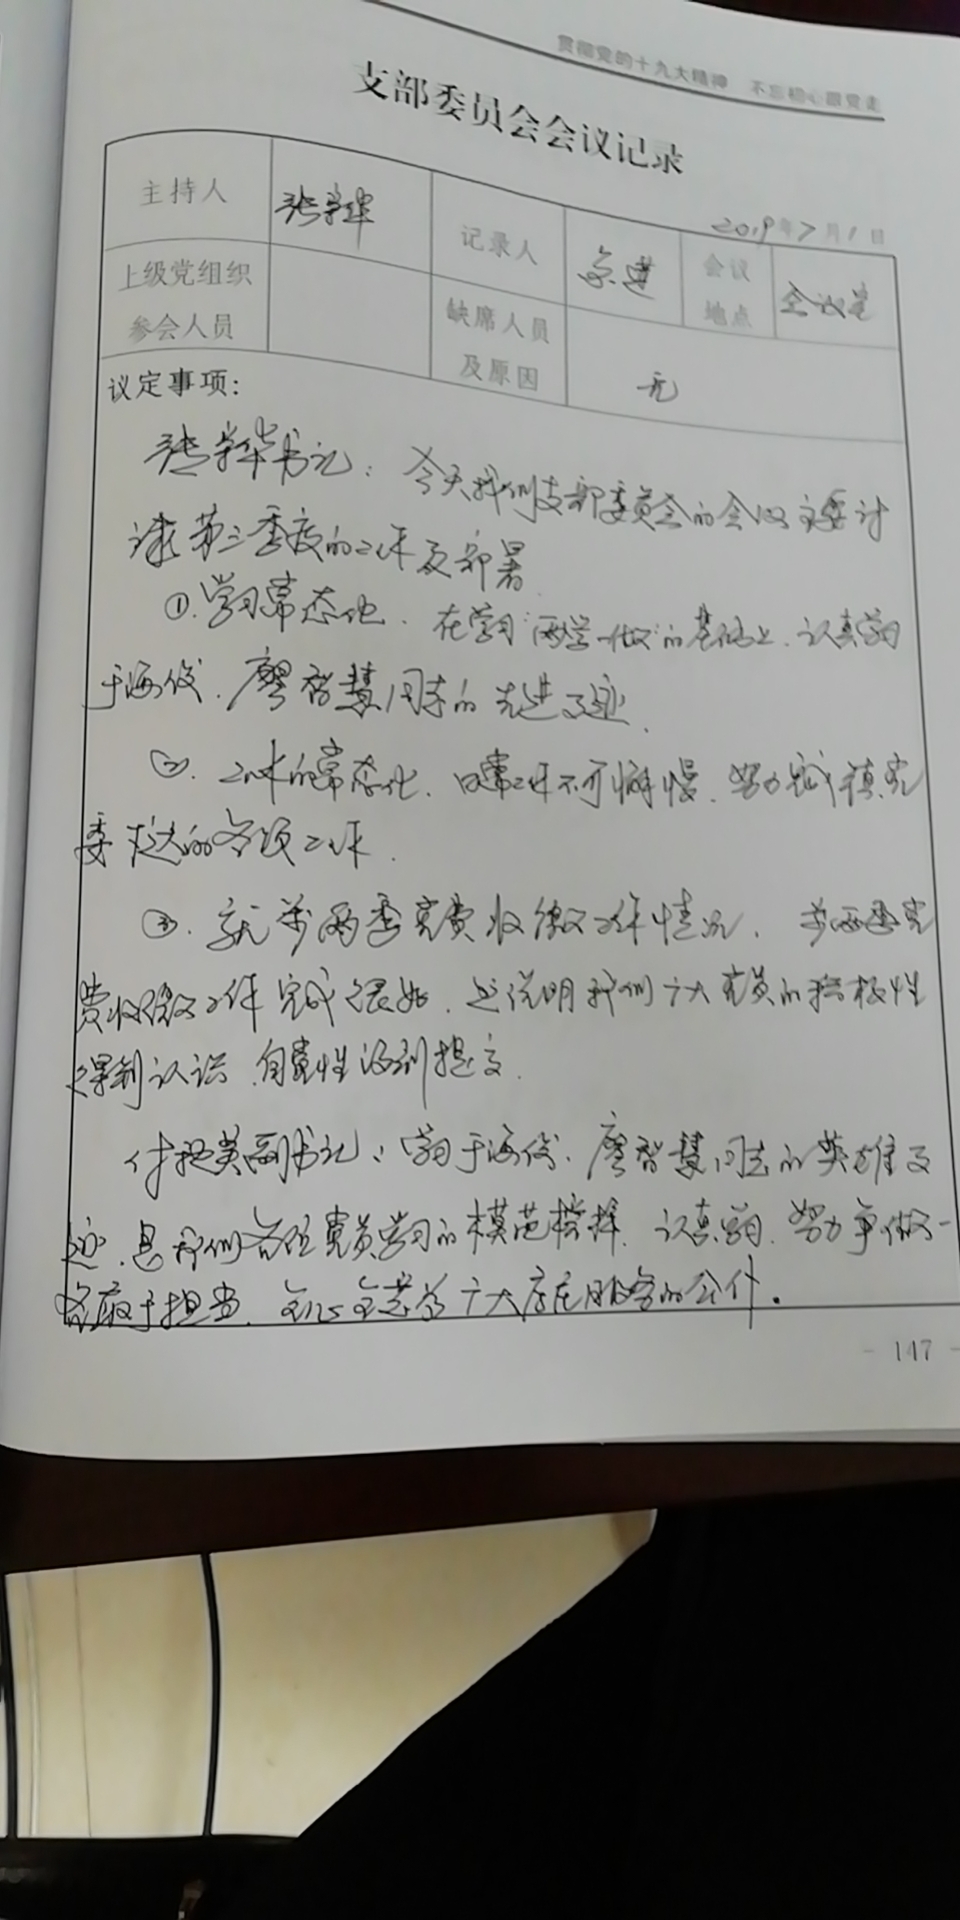 贯彻党的十九大精神 不忘初心跟党走
支部委员会会议记录
2019年7月1日
主持人 张学华 记录人 会议地点 会议室
上级党组织参会人员 缺席人员及原因 无
议定事项：
张学华书记：今天我们支部委员会的会议主要讨
论第三季度的工作及部署
①.学习常态化.在学习"两学一做"的基础上.认真学习
于海俊.廖智慧同志的先进事迹.
②.工作的常态化.日常工作不可懈慢.努力完成镇党
委下达的各项工作.
③.就前两季党费收缴工作情况.前两季党
费收缴工作完成很好.这说明我们广大党员的积极性
得到认识.自觉性得到提高.
付 英副书记：学习于海俊.廖智慧同志的英雄事
迹.是我们各位党员学习的模范榜样.认真学习.努力争做一
名敢于担当.全心全意为广大居民服务的公仆。
- 147 -